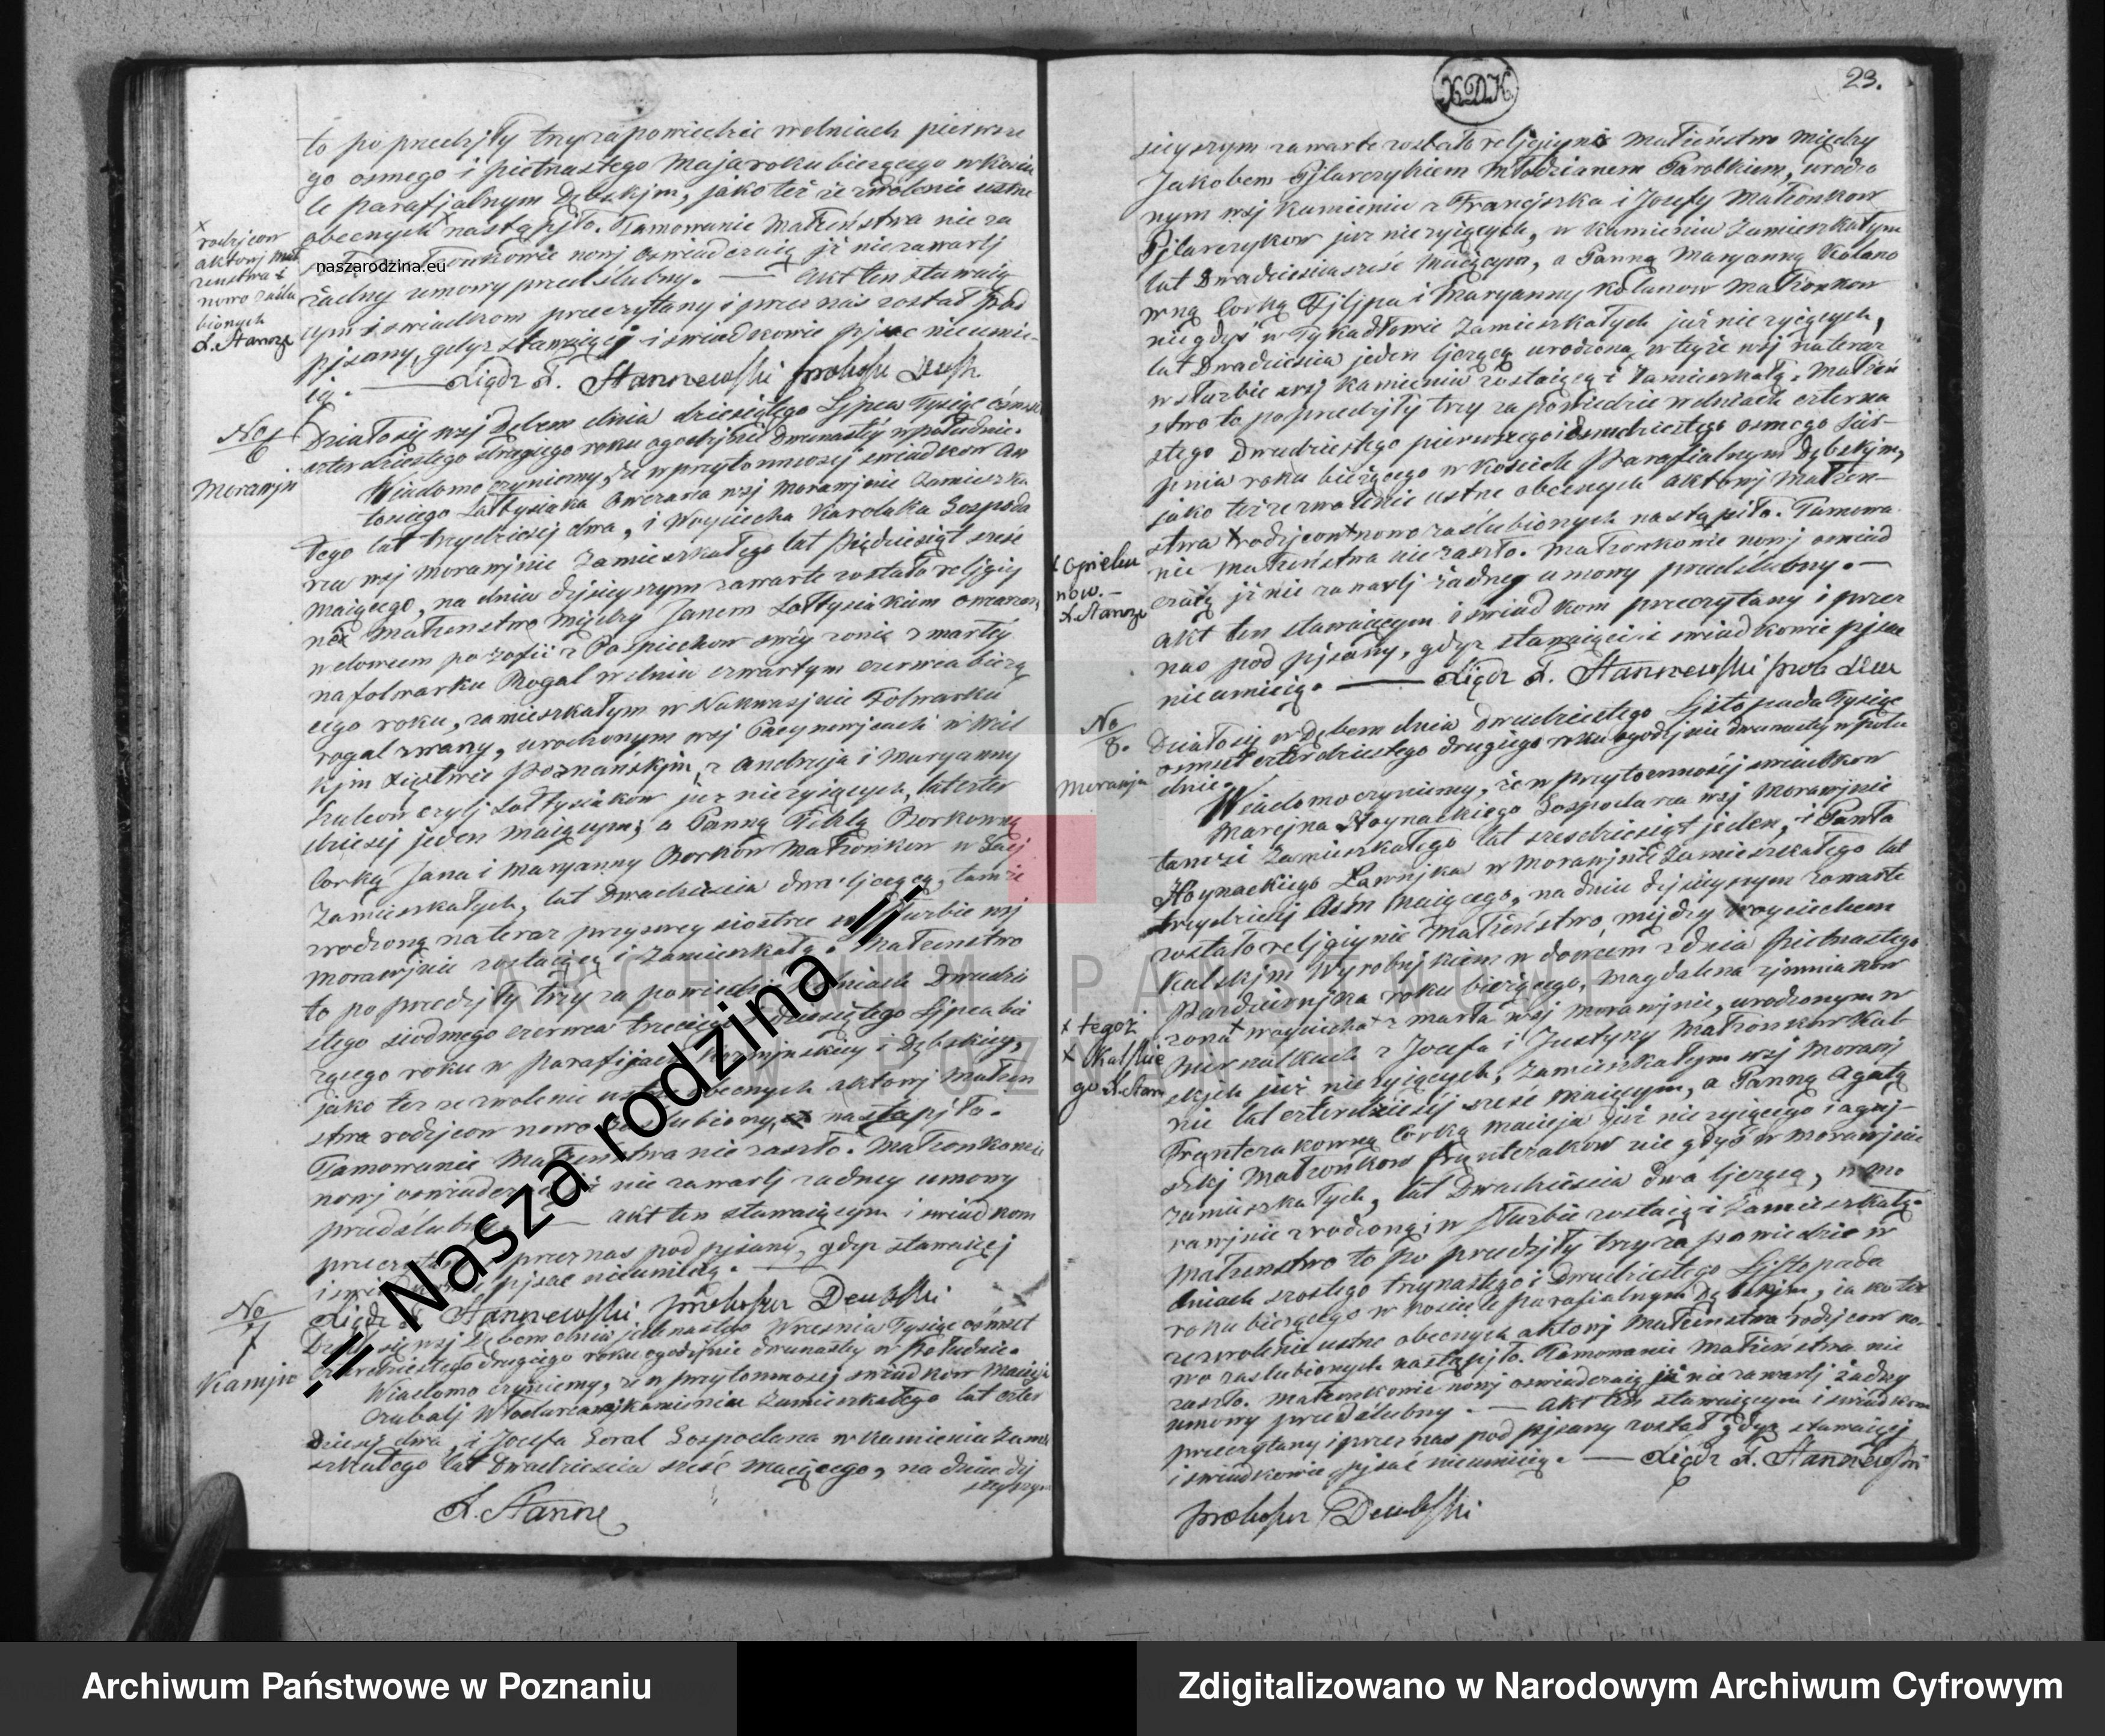 to po przedzjły trzy zapowiedzie w dniach pierwsze
go osmego i pietnastego Maja roku bieżącego w koście
le parafjalnym Dębskjm, jako też ze zwolenie ustne
obecnych nastąpjło. Tamowanie Małżeństwa nie za
Małżonkowie nowj oswiadczaią jż nie zawarlj
żadney umowy przedślubny. — Akt ten stawaią
cym i swiadkom przeczytany i przez nas został pod
pjsany, gdyz stawaięcj i swiadkowie pjsac nieumie
ią. — Xiądz S. Stanzewski proboszcz
x rodzjcow
aktowj mał
zenstwa i
nowo zaślu
bionych
naszarodzina.eu
No 6
Morawjn
Działo się wsj Dębem dnia dziesiątego Ljpca Tysiąc ośmset
czterdziestego drugiego roku o godzjnie dwunastéy w południe.
Wiadomo czyniemy, ze w przytomnosej swiadkow An
toniego Łattysiaka Owczarza wsj Morawjnie zamieszka
łego lat trzydziesj dwa, i Woyciecha Karolaka Gospoda
rza wsj Morawjnie Zamieszkałego lat pięćdziesiąt sześć
maiącego, na dniu dzjsieyszym zawarte zostało religiy
nie Małżenstwo mjędzy Janem Łattysiakiem owczarzem,
wdowcem po Zofii z Pospiechow swéy zonie zmarłéy
na folwarku Rogal w dniu czwartym czerwca bieżą
cego roku, zamieszkałym w Nakwasjnie Folwarku
rogal zwany, urodzonym wsj Pacynowjcach w Wiel
kjm Xięstwie Poznańskjm, z Andrzeja i Maryanny
Szulcow czylj Łattysiakow juz nieżyiących, lat czter
dziesj jeden maiącym; a Panną Teklą Borkowną
Corką Jana i Maryanny Borkow Małżonkow w
Zamieszkałych, lat Dwadzieścia dwa ljczącą, tamże
zrodzoną na teraz przy swey siostrze w służbie wsj
Morawjnie zostaiącą i Zamieszkałą. Małżenstwo
to po przedzjły trzy zapowiedzje w dniach Dwudzie
stego siodmego czerwca trzeciego i dziesiątego Ljpca bie
żącego roku w parafijach Kozmjnskiey i Dębskiey,
jako tez ze zwolenie ustne obecnych aktowj Małżen
stwa rodzjcow nowo zaslubiony nastąpjło.
Tamowanie Małżenstwa nie zaszło. Małżonkowie
nowj oswiadczaią jż nie zawarlj zadney umowy
przedślubny. — Akt ten stawaiącym i swiadkom
przeczytany i przez nas podpjsany, gdyz stawaięcj
i swiadkowie pjsac nieumieią. —
Xiądz S. Stanzewski proboszcz Dembski
No 7
Kamjeń
Działo się wsj Dębem dnia jedenastego Wrzesnia Tysiąc osmset
czterdziestego drugiego roku o godzjnie dwunastey w Południe.
Wiadomo czyniemy, ze w przytomnosej swiadkow Macieja
Czubalj Włodarza wsj Kamieniu zamieszkałego lat czter
dziesj dwa, i Jozefa Goral Gospodarza w Kamieniu Zamie
szkałego lat Dwadziescia sześć maiącego, na dniu dzj
sieyszym
S. Stanze
XDK
23.
sieyszym zawarte zostało religiynie Małżeństwo między
Jakobem Pjlarczykiem Młodzianem Parobkiem, urodzo
nym wsj Kamieniu z Francjszka i Jozefy Małżonkow
Pjlarczykow juz nieżyiących, w Kamieniu Zamieszkałym
lat Dwadziescia sześć maiącym, a Panną Maryanną Kolano
wną Corką Fjljpa i Maryanny Kolanow Małżonkow
niegdyś w Tykadłowie Zamieszkałych już nieżyiących,
lat Dwadziescia jeden ljczącą urodzoną w teyże wsj na teraz
w służbie wsj Kamieniu zostaiącą i Zamieszkałą. Małżeń
stwo to poprzedzjły trzy zapowiedzie w dniach czterna
stego Dwudziestego pierwszego i dwudziestego osmego Sier-
pnia roku bieżącego w kosciele Parafialnym Dębskjm,
jako też ze zwolenie ustne obecnych aktowj Małżen-
stwa x rodzjcow x nowo zaślubionych nastąpiło. Tamowa
nie Małżeństwa nie zaszło. Małżonkowie nowj oswiad
czaią jż nie zawarlj żadney umowy przedslubny. —
Akt ten stawaiącym i swiadkom przeczytany i przez
nas pod pjsany, gdyz stawaięcj i swiadkowie pjsac
nieumieią. — Xiądz S. Stanzewski prob
x opieku
now. —
X. Stanze
No 8.
Morawjn
Działo się w Dębem dnia dwudziestego Ljstopada Tysiąc
osmset czterdziestego drugiego roku o godzjnie dwunastey w połu
dnie.
Wiadomo czyniemy, że w przytomnosej swiadkow
Marcjna Hoynackiego Gospodarza wsj Morawjnie
Zamieszkałego lat szesdziesiąt jeden, i Pawła
Hoynackiego Ławnjka w Morawjnie Zamieszkałego lat
trzydziesj osm maiącego, na dniu dzjsieyszym Zawarte
zostało religiynie Małżeństwo, między Woyciechem
Kalskjm Wyrobnjkiem wdowcem z dnia pietnastego
Pazdziernjka roku bieżącego, Magdalena zjmniakow
zona x Woyciecha x zmarła wsj Morawjnie, urodzonym w
z Jozefa i Justyny Małżonkow Kal
skich już nieżyiących, Zamieszkałym wsj Morawj
nie lat czterdziesj sześć maiącym, a Panną Agatą
Frątczakowną Corką Macieja już nieżyiącego i Agnj-
szkj Małżonkow Frątczakow niegdyś w Morawjnie
Zamieszkałych, lat Dwadziescia dwa ljczącą, w Mo
rawjnie zrodzoną i w służbie zostaiącą i Zamieszkałą.
Małżenstwo to po przedzjły trzy zapowiedzie w
dniach szostego trzynastego i Dwudziestego Ljstopada
roku bieżącego w kosciele parafialnym Dębskjm, jako tez
zezwolenie ustne obecnych aktowj Małżenstwa rodzjcow no
wo zaslubionych nastąpjło. Tamowanie Małżeństwa nie
zaszło. Małżonkowie nowj oswiadczaią jż nie zawarlj żadney
umowy przedślubny. — Akt ten stawaiącym i swiadkom
przeczytany i przez nas podpjsany został gdyz stawaięcj
i swiadkowie pjsać nieumieią. — Xiądz S. Stanzewski
proboszcz Dembski
x tegoż
x Kalskie
go X. Stan
.:: Nasza rodzina ::.
ARCHIWUM PAŃSTWOWE
W POZNANIU
Archiwum Państwowe w Poznaniu
Zdigitalizowano w Narodowym Archiwum Cyfrowym